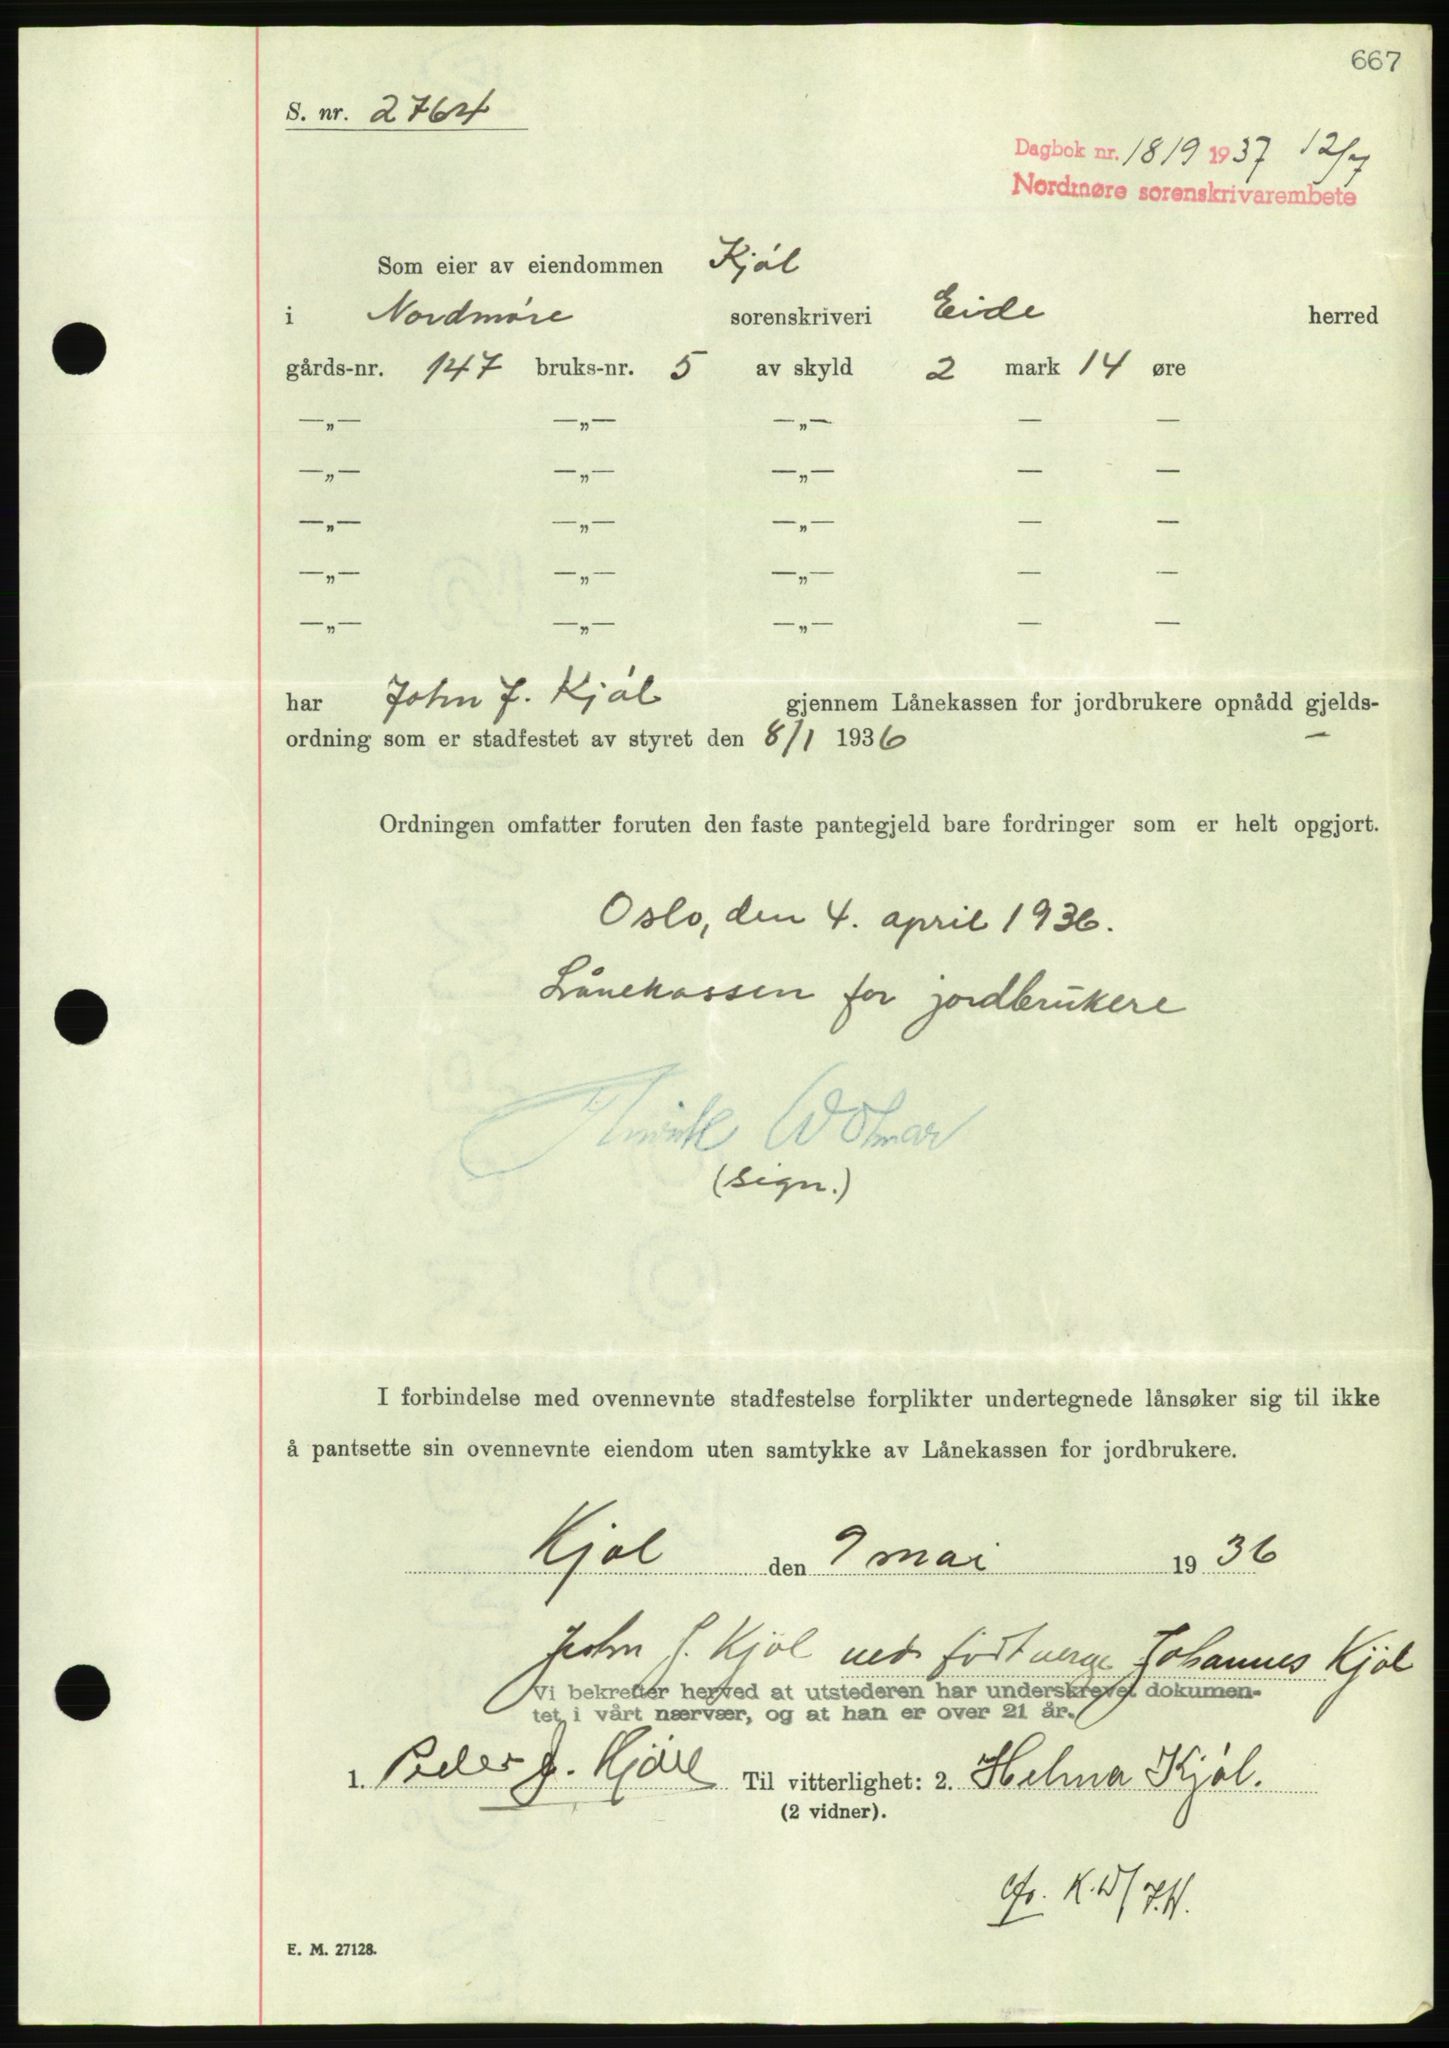 667
S. nr. 2764
Dagbok nr. 1819 1937 12/7
Nordmøre sorenskrivarembete
Som eier av eiendommen Kjøl
i Nordmøre sorenskriveri Eide herred
gårds-nr. 147 bruks-nr. 5 av skyld 2 mark 14 øre
—„— —„— —„— — —
—„— —„— —„— — —
—„— —„— —„— — —
—„— —„— —„— — —
—„— —„— —„— — —
har John J. Kjøl gjennem Lånekassen for jordbrukere opnådd gjelds-
ordning som er stadfestet av styret den 8/1 1936
Ordningen omfatter foruten den faste pantegjeld bare fordringer som er helt opgjort.
Oslo, den 4. april 1936.
Lånekassen for jordbrukere
(sign.)
I forbindelse med ovennevnte stadfestelse forplikter undertegnede lånsøker sig til ikke
å pantsette sin ovennevnte eiendom uten samtykke av Lånekassen for jordbrukere.
Kjøl den 9 mai 1936
John J. Kjøl Johannes Kjøl
Vi bekrefter herved at utstederen har underskrevet dokumen-
tet i vårt nærvær, og at han er over 21 år.
1. Peder J. Til vitterlighet: 2. Helma Kjøl.
(2 vidner).
K.W/J.H.
E. M. 27128.